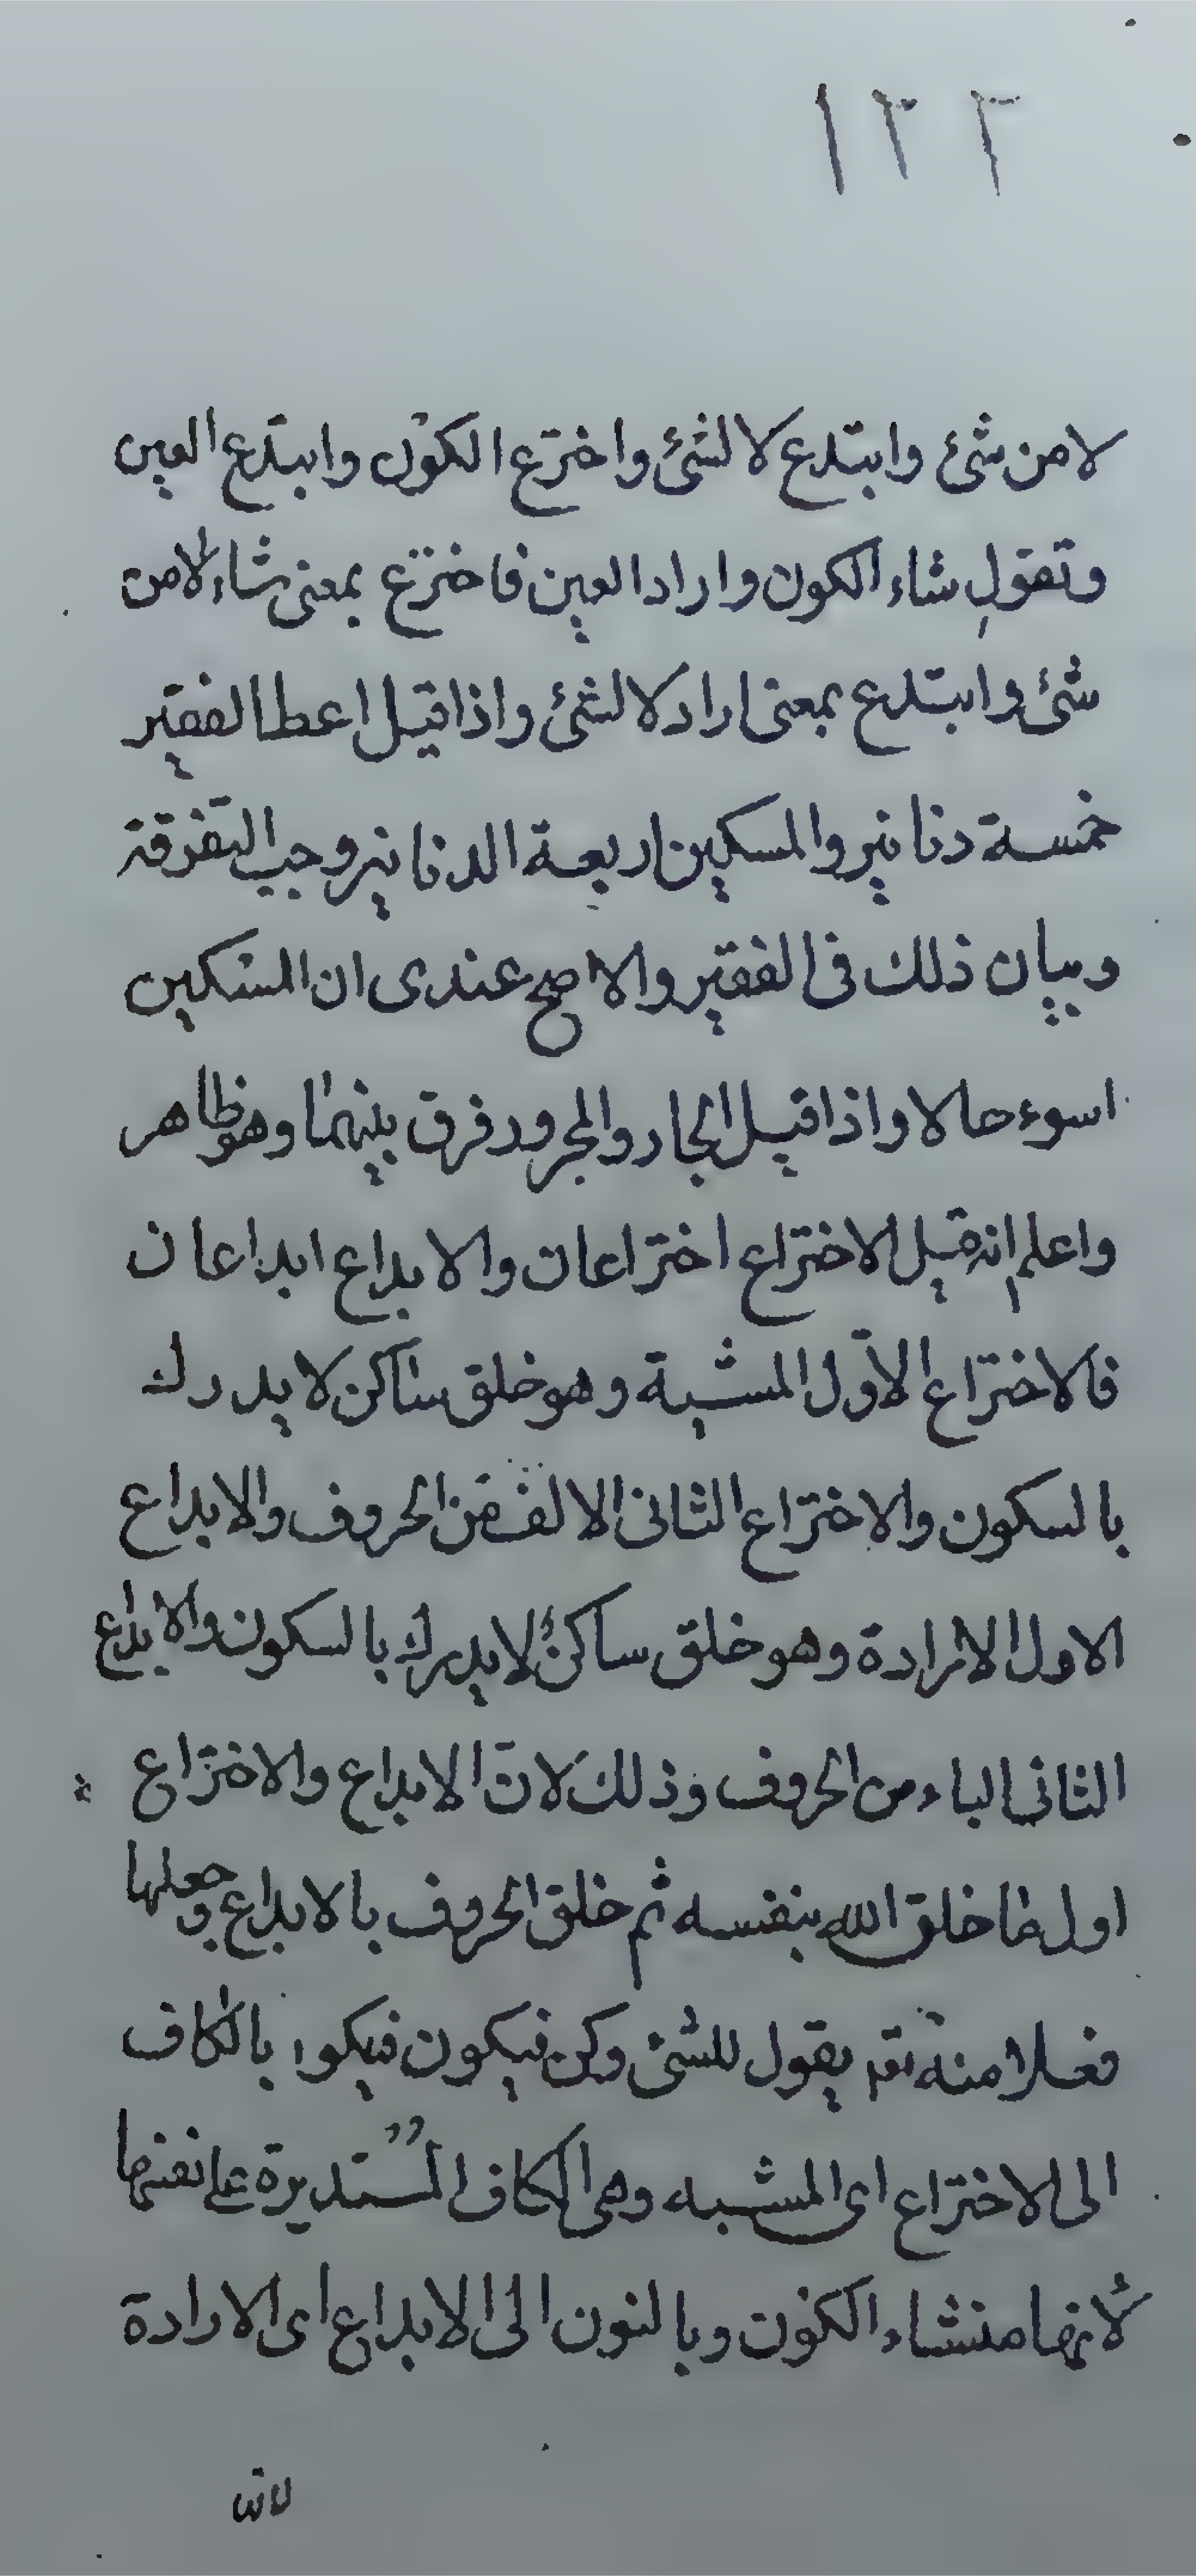 ١٢٢
لا من شئ وابتدع لا لشئ واخترع الكون وابتدع العين
وتقول شاء الكون واراد العين فاخترع بمعنى شاء لا من
شئ وابتدع بمعنى اراد لا لشئ واذا قيل اعط الفقير
خمسة دنانير والمسكين اربعة الدنانير وجب التفرقة
وبيان ذلك فى الفقير والاصح عندى ان المسكين
اسوء حالا واذا قيل الجار والمجرور فرق بينهما وهو ظاهر
واعلم انه قيل الاختراع اختراعان والابداع ابداعان
فالاختراع الاول المشية وهو خلق ساكن لا يدرك
بالسكون والاختراع الثانى الالف من الحروف والابداع
الاول الارادة وهو خلق ساكن لا يدرك بالسكون والابداع
الثانى الباء من الحروف وذلك لان الابداع والاختراع
اول ما خلق الله بنفسه ثم خلق الحروف بالابداع وجعلها
فعلا منه يقول للشئ كن فيكون فيكون بالكاف
الى الاختراع اى المشيه وهى الكاف المستديرة على نفسها
لانها منشاء الكون وبالنون الى الابداع اى الارادة
لانه